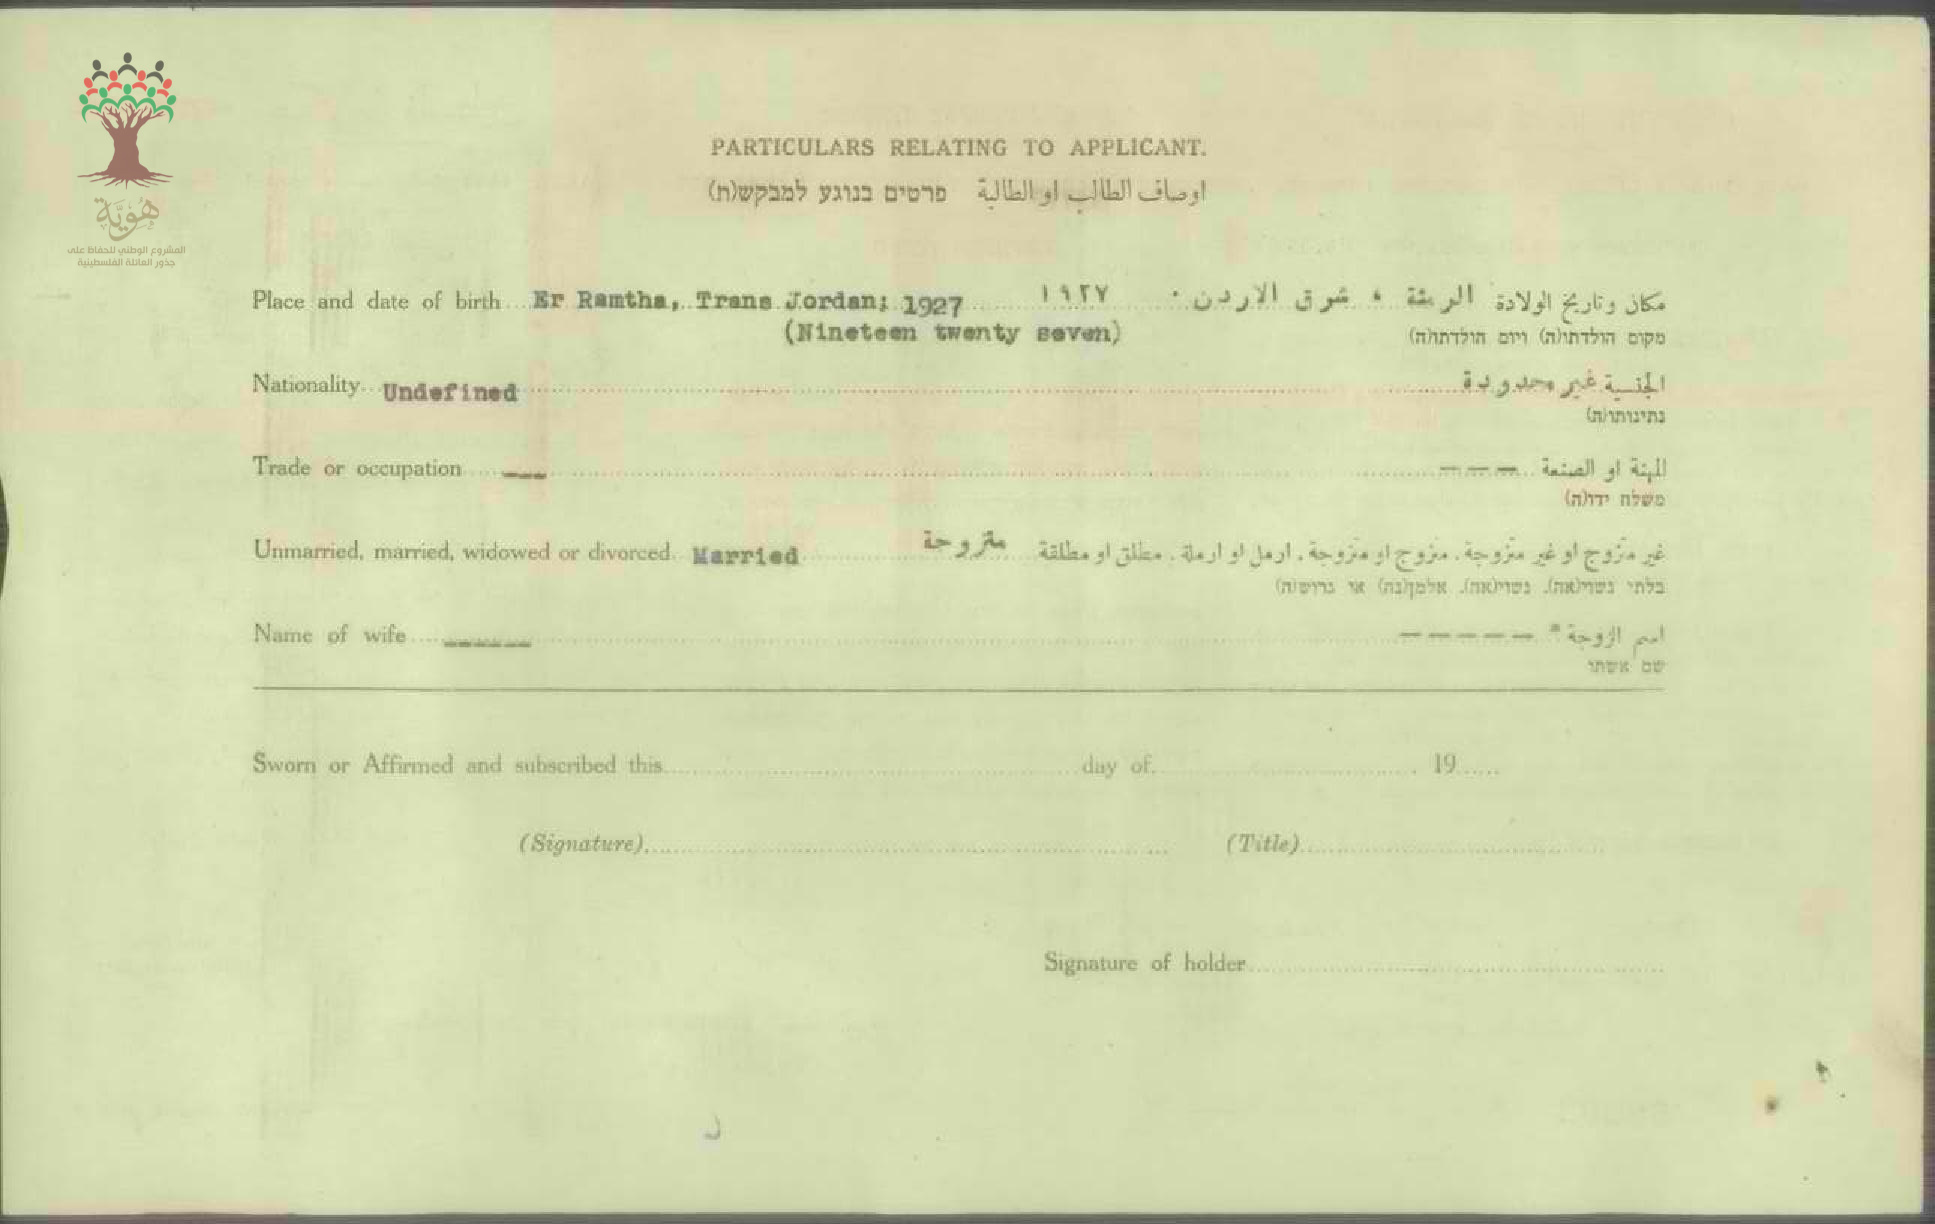 هُوِيَّة
المشروع الوطني للحفاظ على
جذور العائلة الفلسطينية
PARTICULARS RELATING TO APPLICANT.
اوصاف الطالب او الطالبة פרטים בנוגע למבקש(ת)
Place and date of birth Er Ramtha, Trans Jordan; 1927 مكان وتاريخ الولادة الرمثة ، شرق الاردن . ١٩٢٧
(Nineteen twenty seven) מקום הולדתו(ה) ויום הולדתו(ה)
Nationality Undefined الجنسية غير محدودة
נתינותו(ה)
Trade or occupation --- المهنة او الصنعة ---
משלח ידו(ה)
Unmarried, married, widowed or divorced. Married غير متزوج او غير متزوجة، متزوج او متزوجة، ارمل او ارملة، مطلق او مطلقة متزوجة
בלתי נשוי(אה), נשוי(אה), אלמן(נה) או גרוש(ה)
Name of wife ------ اسم الزوجة * -----
שם אשתו
Sworn or Affirmed and subscribed this day of 19
(Signature) (Title)
Signature of holder